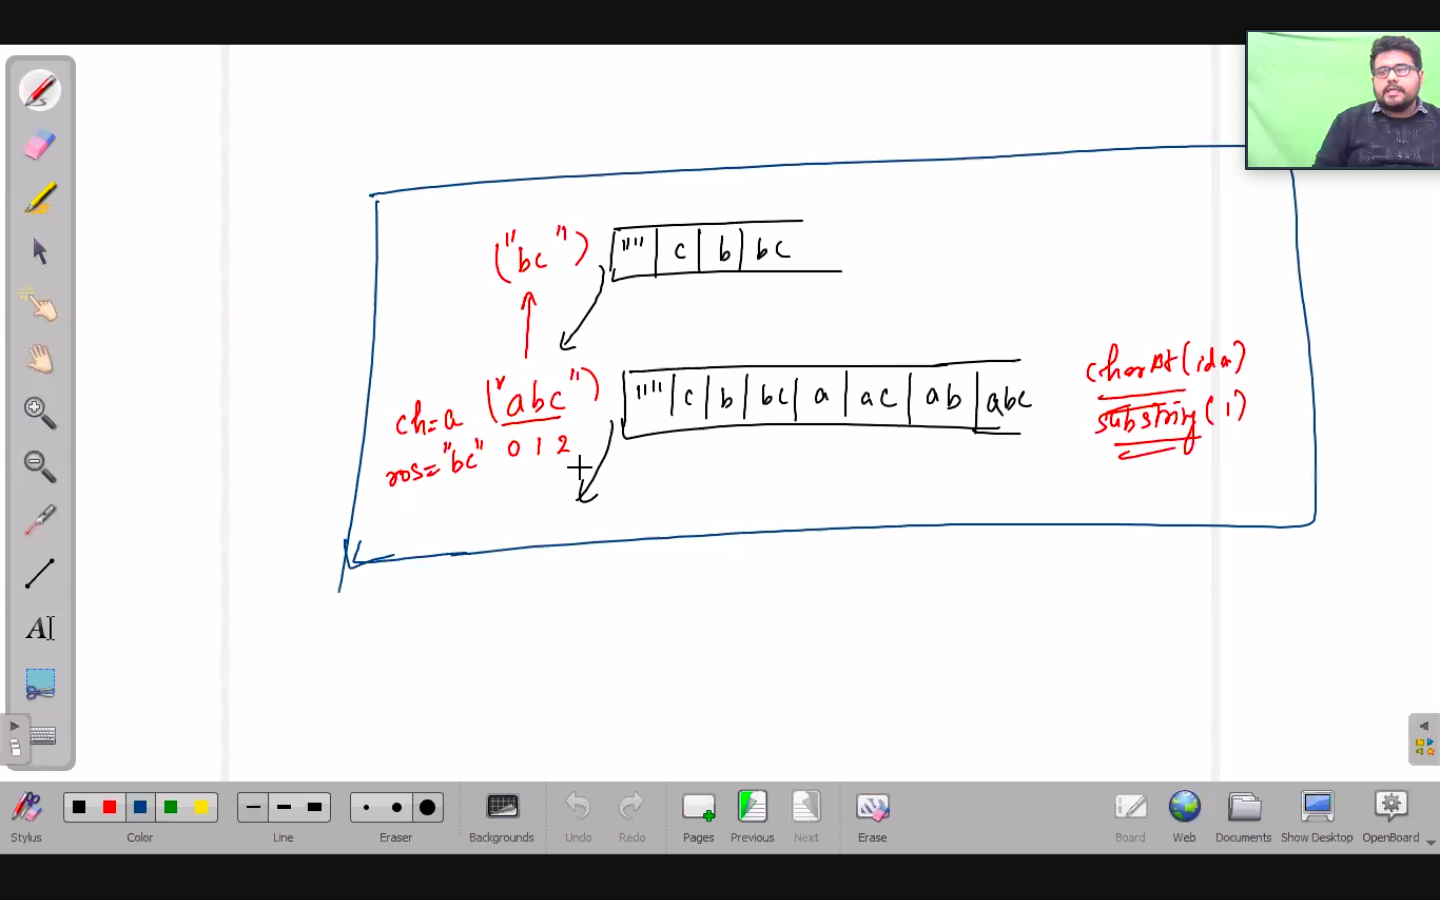 ("bc") "" c b bc
ch=a ("abc") "" c b bc a ac ab abc
ros="bc" 0 1 2
charAt(idx)
substring(1)
A
Stylus Color Line Eraser Backgrounds Undo Redo Pages Previous Next Erase Board Web Documents Show Desktop OpenBoard